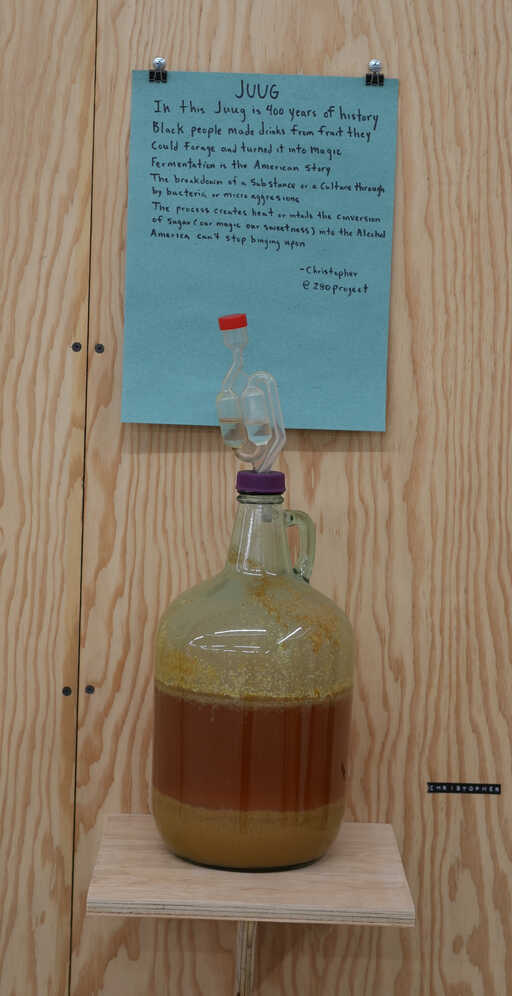 JUUG
In this Juug is 400 years of history
Black people made drinks from fruit they
Could Forage and turned it into Magic
Fermentation is the American Story
The breakdown of a Substance or a Culture through
by bacteria or micro aggresions
The process creates heat or intails the conversion
of Sugar (our magic our sweetness) into the Alcohol
America can't stop binging upon
-Christopher
@ZHOproject
CHRISTOPHER